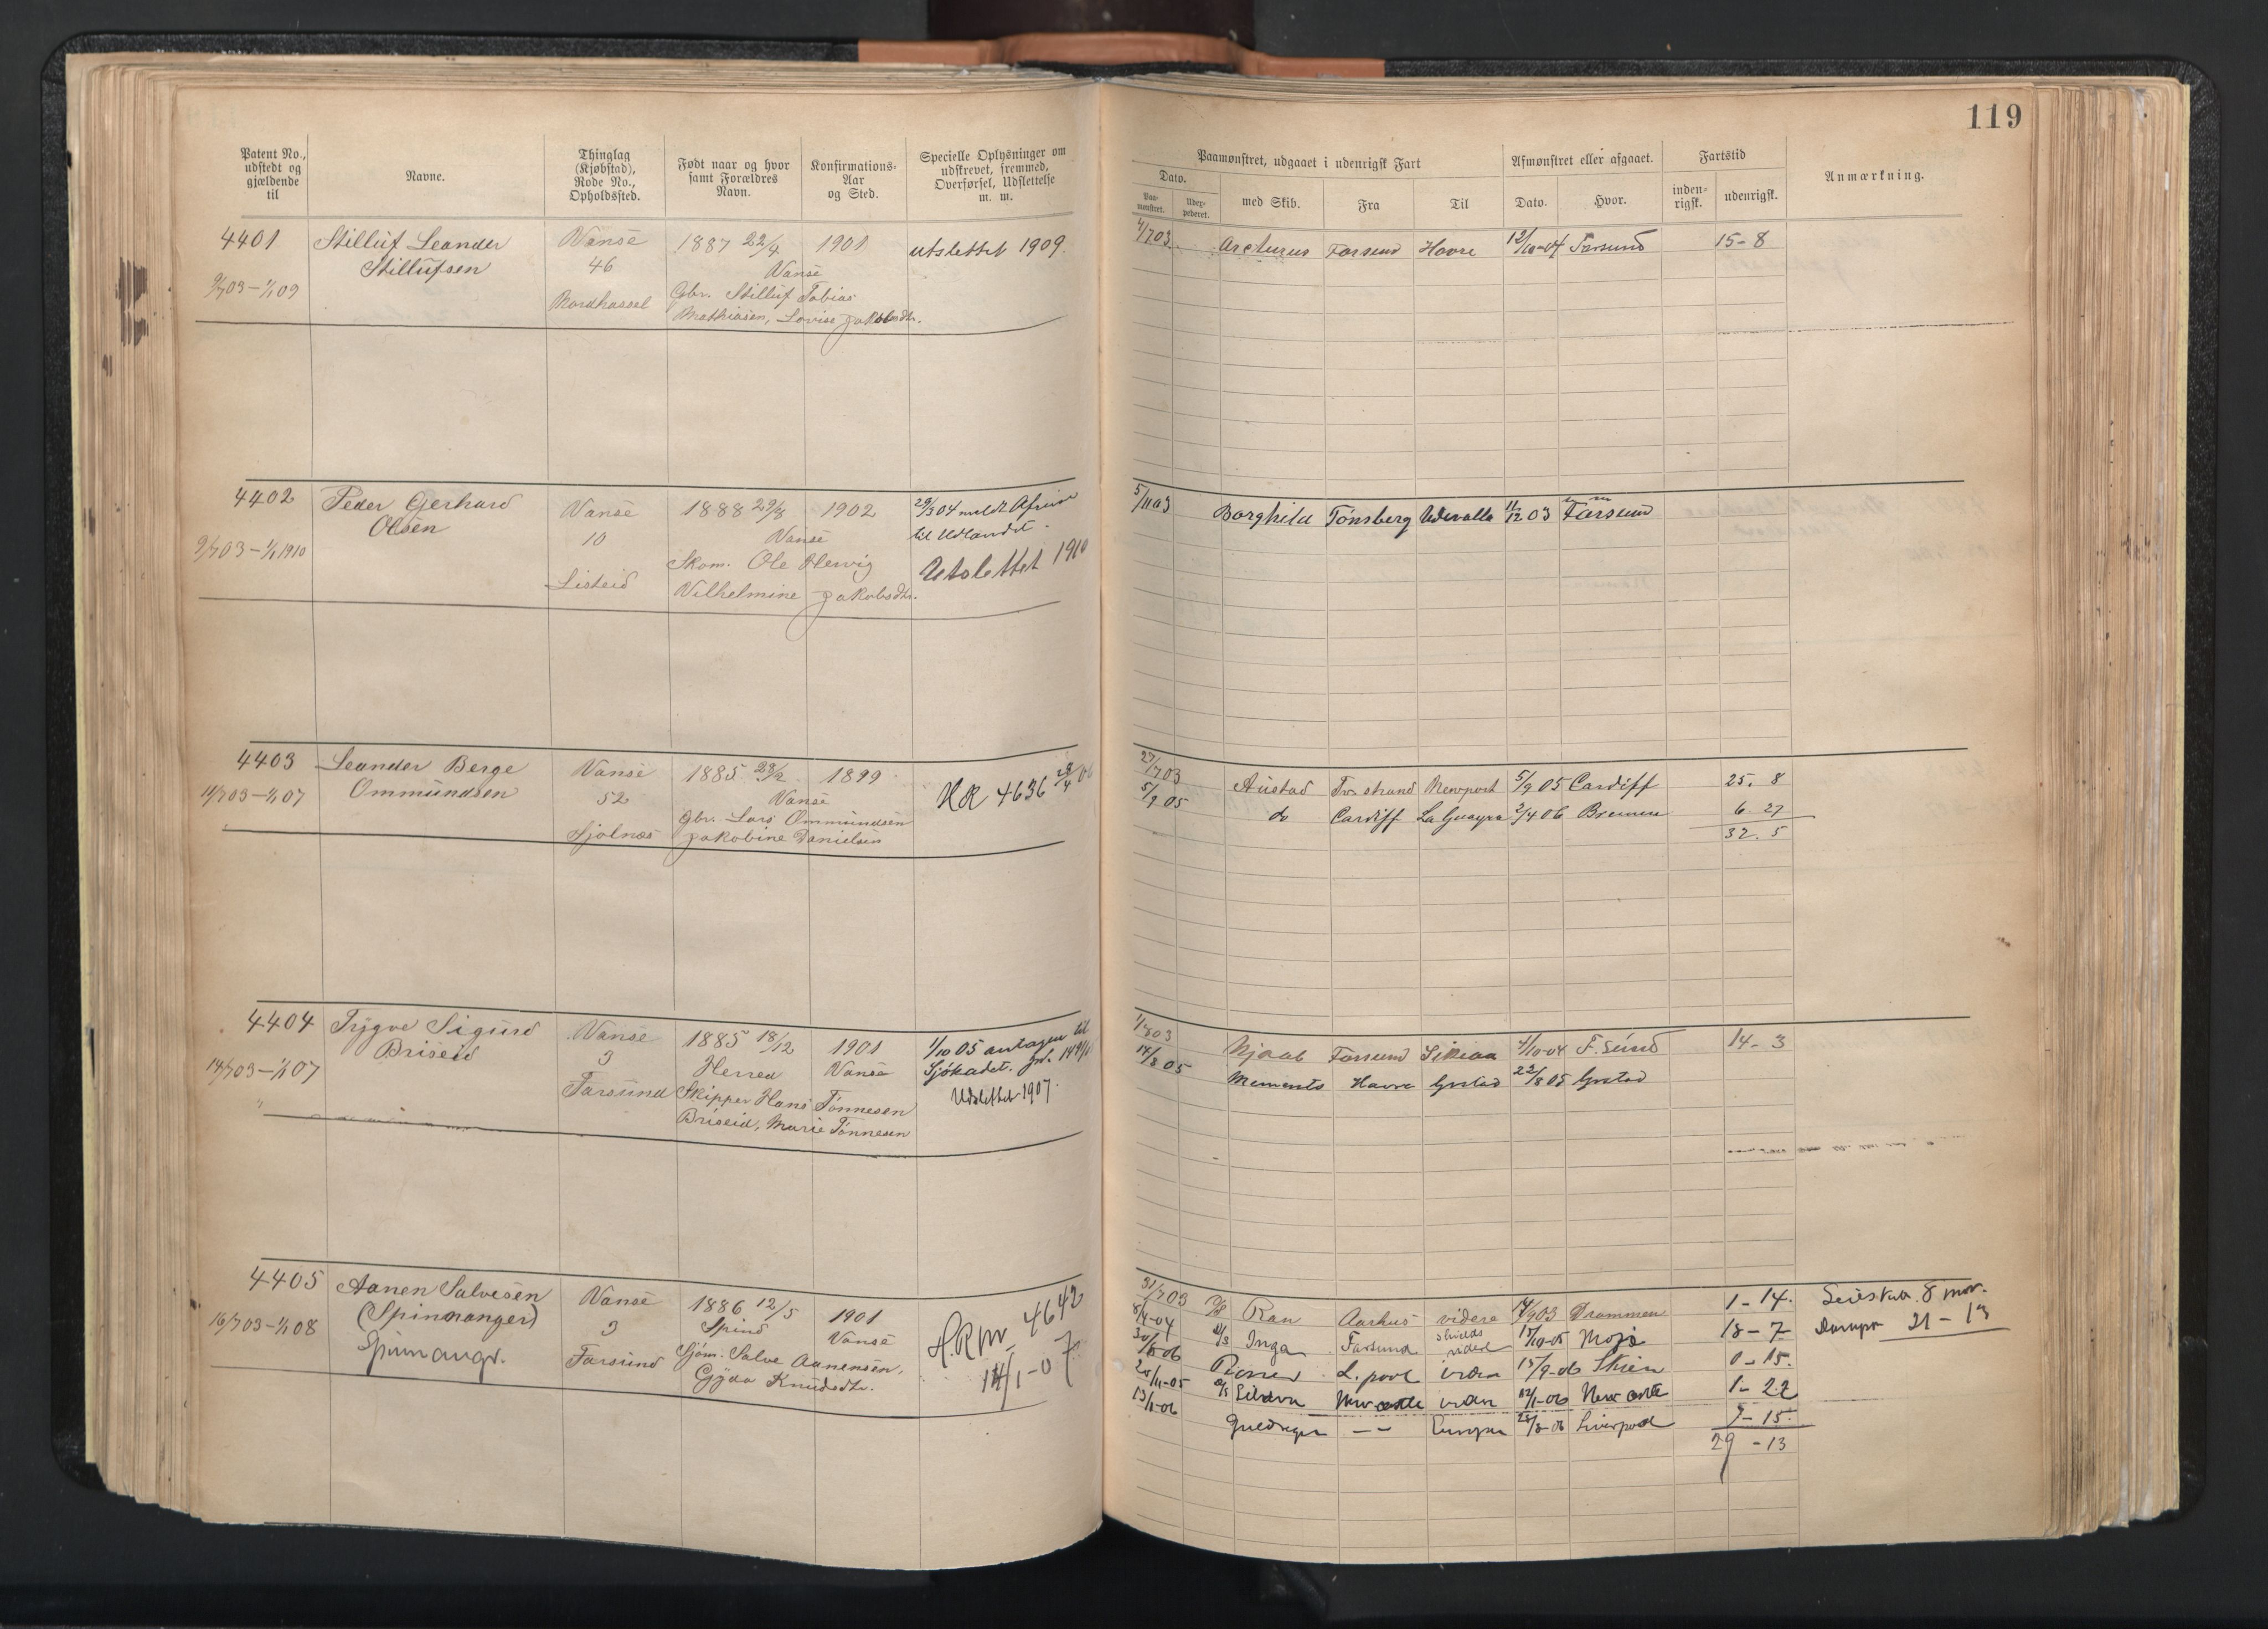 119
Patent No., udstedt og gjældende til
Navne.
Thinglag (Kjøbstad), Rode No., Opholdssted.
Født naar og hvor samt Forældres Navn.
Konfirmations-Aar og Sted.
Specielle Oplysninger om udskrevet, fremmed, Overførsel, Udslettelse m. m.
Paamønstret, udgaaet i udenrigsk Fart
Afmønstret eller afgaaet.
Fartstid
Anmærkning.
Dato.
Paa-mønstret.
Udex-pederet.
med Skib.
Fra
Til
Dato.
Hvor.
inden-rigsk.
udenrigsk.
4401 Stilluf Leander Vanse 1887 22/4 1901 utslettet 1909.
Stillufsen 46 Vanse
9/703-1/1 09 Bordhassel Gbr. Stilluf Tobias
Mathiasen, Lovise Jakobsdtr.
4/703 Arcturus Farsund Havre 12/10-04 Farsund 15-8
4402 Peder Gerhard Vanse 1888 29/8 1902 29/3 04 meldt Afreise
Olsen 10 Vanse til Udlandet.
9/703-1/1 1910 Skom. Ole Olevig Utslettet 1910
Listeid Vilhelmine Jakobsdtr.
5/1103 Borghild Tønsberg Udevalla 11/12 03 Farsund
4403 Leander Berge Vanse 1885 23/2 1899 HR 4636 28/4 06
Ommundsen 52 Vanse
11/703-1/1 07 gbr. Lars Ommundsen
Sjølnes Jakobine Danielsen
27/703 Austad Tvedestrand Newport 5/9 05 Cardiff 25. 8
5/9 05 do Cardiff La Guayra 2/4 06 Bremen 6-27
32. 5
4404 Trygve Sigurd Vanse 1885 18/12 1901 1/10 05 antagen til
Briseid 3 Herred Vanse Sjökadet.
14/703-1/1 07 Farsund Skipper Hans Tønnesen Udslettet 1907.
Briseid, Marie Tønnesen
1/803 Njaal Farsund 4/10-04 F.sund 14-3
14/8 05 Memento Havre Grstad 22/8 05 Grstad
4405 Aanen Salvesen Vanse 1886 12/5 1901 H.R. 4642
(Spinmanger) 3 Spind Vanse 14/1-07
16/703-1/1 08 Spinmangr. Farsund Sjøm. Salve Aanensen,
Gyda Knudsdtr.
31/703 Ran Aarhus videre 903 Drammen 1-14.
8/4-04 Inga Farsund Shields videre 15/10-05 18-7
L.pool 15/9-06 Skien 0-15.
20/11-05 Newcastle 12/1-06 Newcastle 1-22
13/1-06 Guldregn -- Europa 28/8-06 Liverpool 7-15.
29-13
8 mdr.
21-13